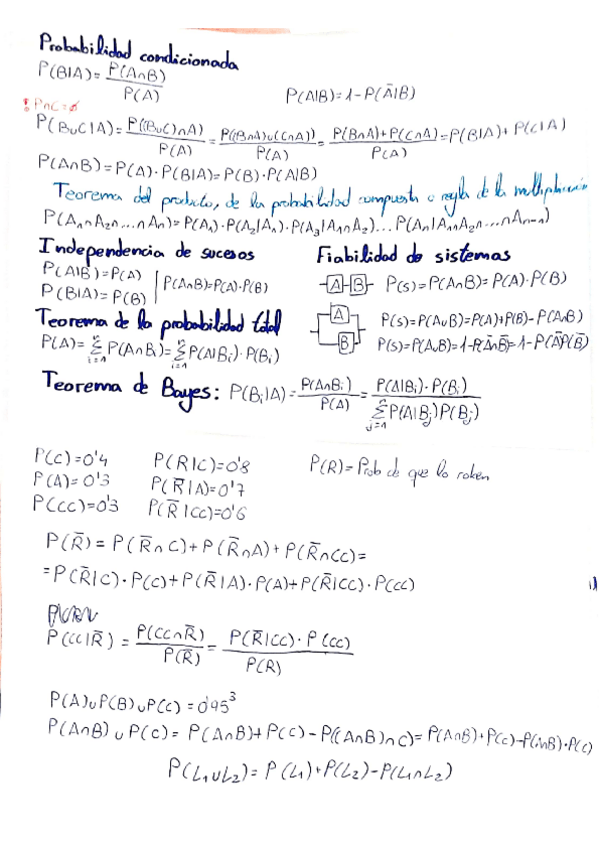 Probabilidad condicionada
P(B|A) = P(A∩B) / P(A)
P(A|B) = 1 - P(Ā|B)
! B∩C = ∅
P(B∪C|A) = P((B∪C)∩A) / P(A) = P((B∩A)∪(C∩A)) / P(A) = P(B∩A)+P(C∩A) / P(A) = P(B|A) + P(C|A)
P(A∩B) = P(A)·P(B|A) = P(B)·P(A|B)
Teorema del producto, de la probabilidad compuesta o regla de la multiplicación
P(A₁∩A₂∩...∩Aₙ) = P(A₁)·P(A₂|A₁)·P(A₃|A₁∩A₂)...P(Aₙ|A₁∩A₂∩...∩Aₙ₋₁)
Independencia de sucesos
P(A|B) = P(A)
P(B|A) = P(B)
P(A∩B) = P(A)·P(B)
Fiabilidad de sistemas
A B P(S) = P(A∩B) = P(A)·P(B)
A
B
P(S) = P(A∪B) = P(A)+P(B)-P(A∩B)
P(S) = P(A∪B) = 1-P(Ā∩B̄) = 1-P(Ā)P(B̄)
Teorema de la probabilidad total
P(A) = Σ P(A∩Bᵢ) = Σ P(A|Bᵢ)·P(Bᵢ)
Teorema de Bayes: P(Bᵢ|A) = P(A∩Bᵢ) / P(A) = P(A|Bᵢ)·P(Bᵢ) / Σ P(A|Bⱼ)P(Bⱼ)
P(C) = 0'4 P(R|C) = 0'8 P(R) = Prob de que lo roben
P(A) = 0'3 P(R̄|A) = 0'7
P(CC) = 0'3 P(R̄|CC) = 0'6
P(R̄) = P(R̄∩C) + P(R̄∩A) + P(R̄∩CC) =
= P(R̄|C)·P(C) + P(R̄|A)·P(A) + P(R̄|CC)·P(CC)
P(CC|R̄) = P(CC∩R̄) / P(R̄) = P(R̄|CC)·P(CC) / P(R)
P(A)∪P(B)∪P(C) = 0'95³
P(A∩B)∪P(C) = P(A∩B)+P(C)-P((A∩B)∩C) = P(A∩B)+P(C)-P(A∩B)·P(C)
P(L₁∪L₂) = P(L₁)+P(L₂)-P(L₁∩L₂)